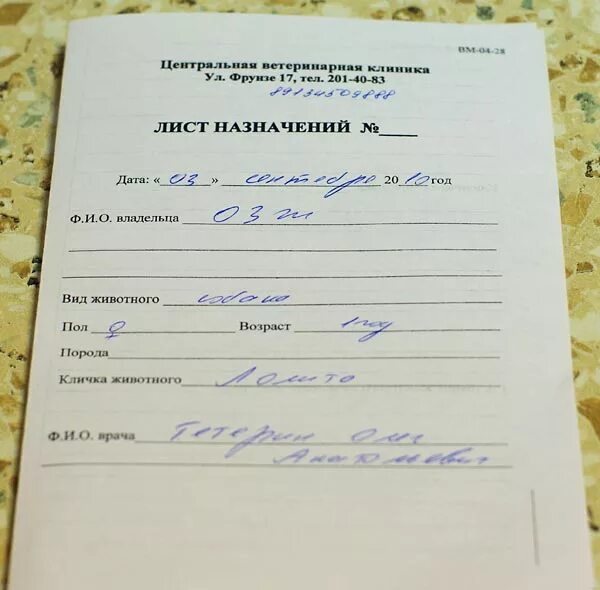 ВМ-04-28
Центральная ветеринарная клиника
Ул. Фрунзе 17, тел. 201-40-83
89134509888
ЛИСТ НАЗНАЧЕНИЙ №____
Дата: «03» сентебря 2010 год
Ф.И.О. владельца ОЗЖ
Вид животного собака
Пол ♀ Возраст 1 год
Порода
Кличка животного Лолита
Ф.И.О. врача Тетерин Олег
Анатольевич